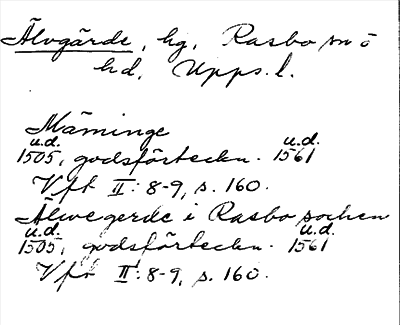 Älvgärde, hg, Rasbo sn ö
hd, Upps. l.
Märinge
u.d. u.d.
1505, godsförteckn. 1561
Vft II: 8-9, s. 160.
Älwegerde i Rasbo sochen
u.d. u.d.
1505, godsförteckn. 1561
Vft II: 8-9, s. 160.